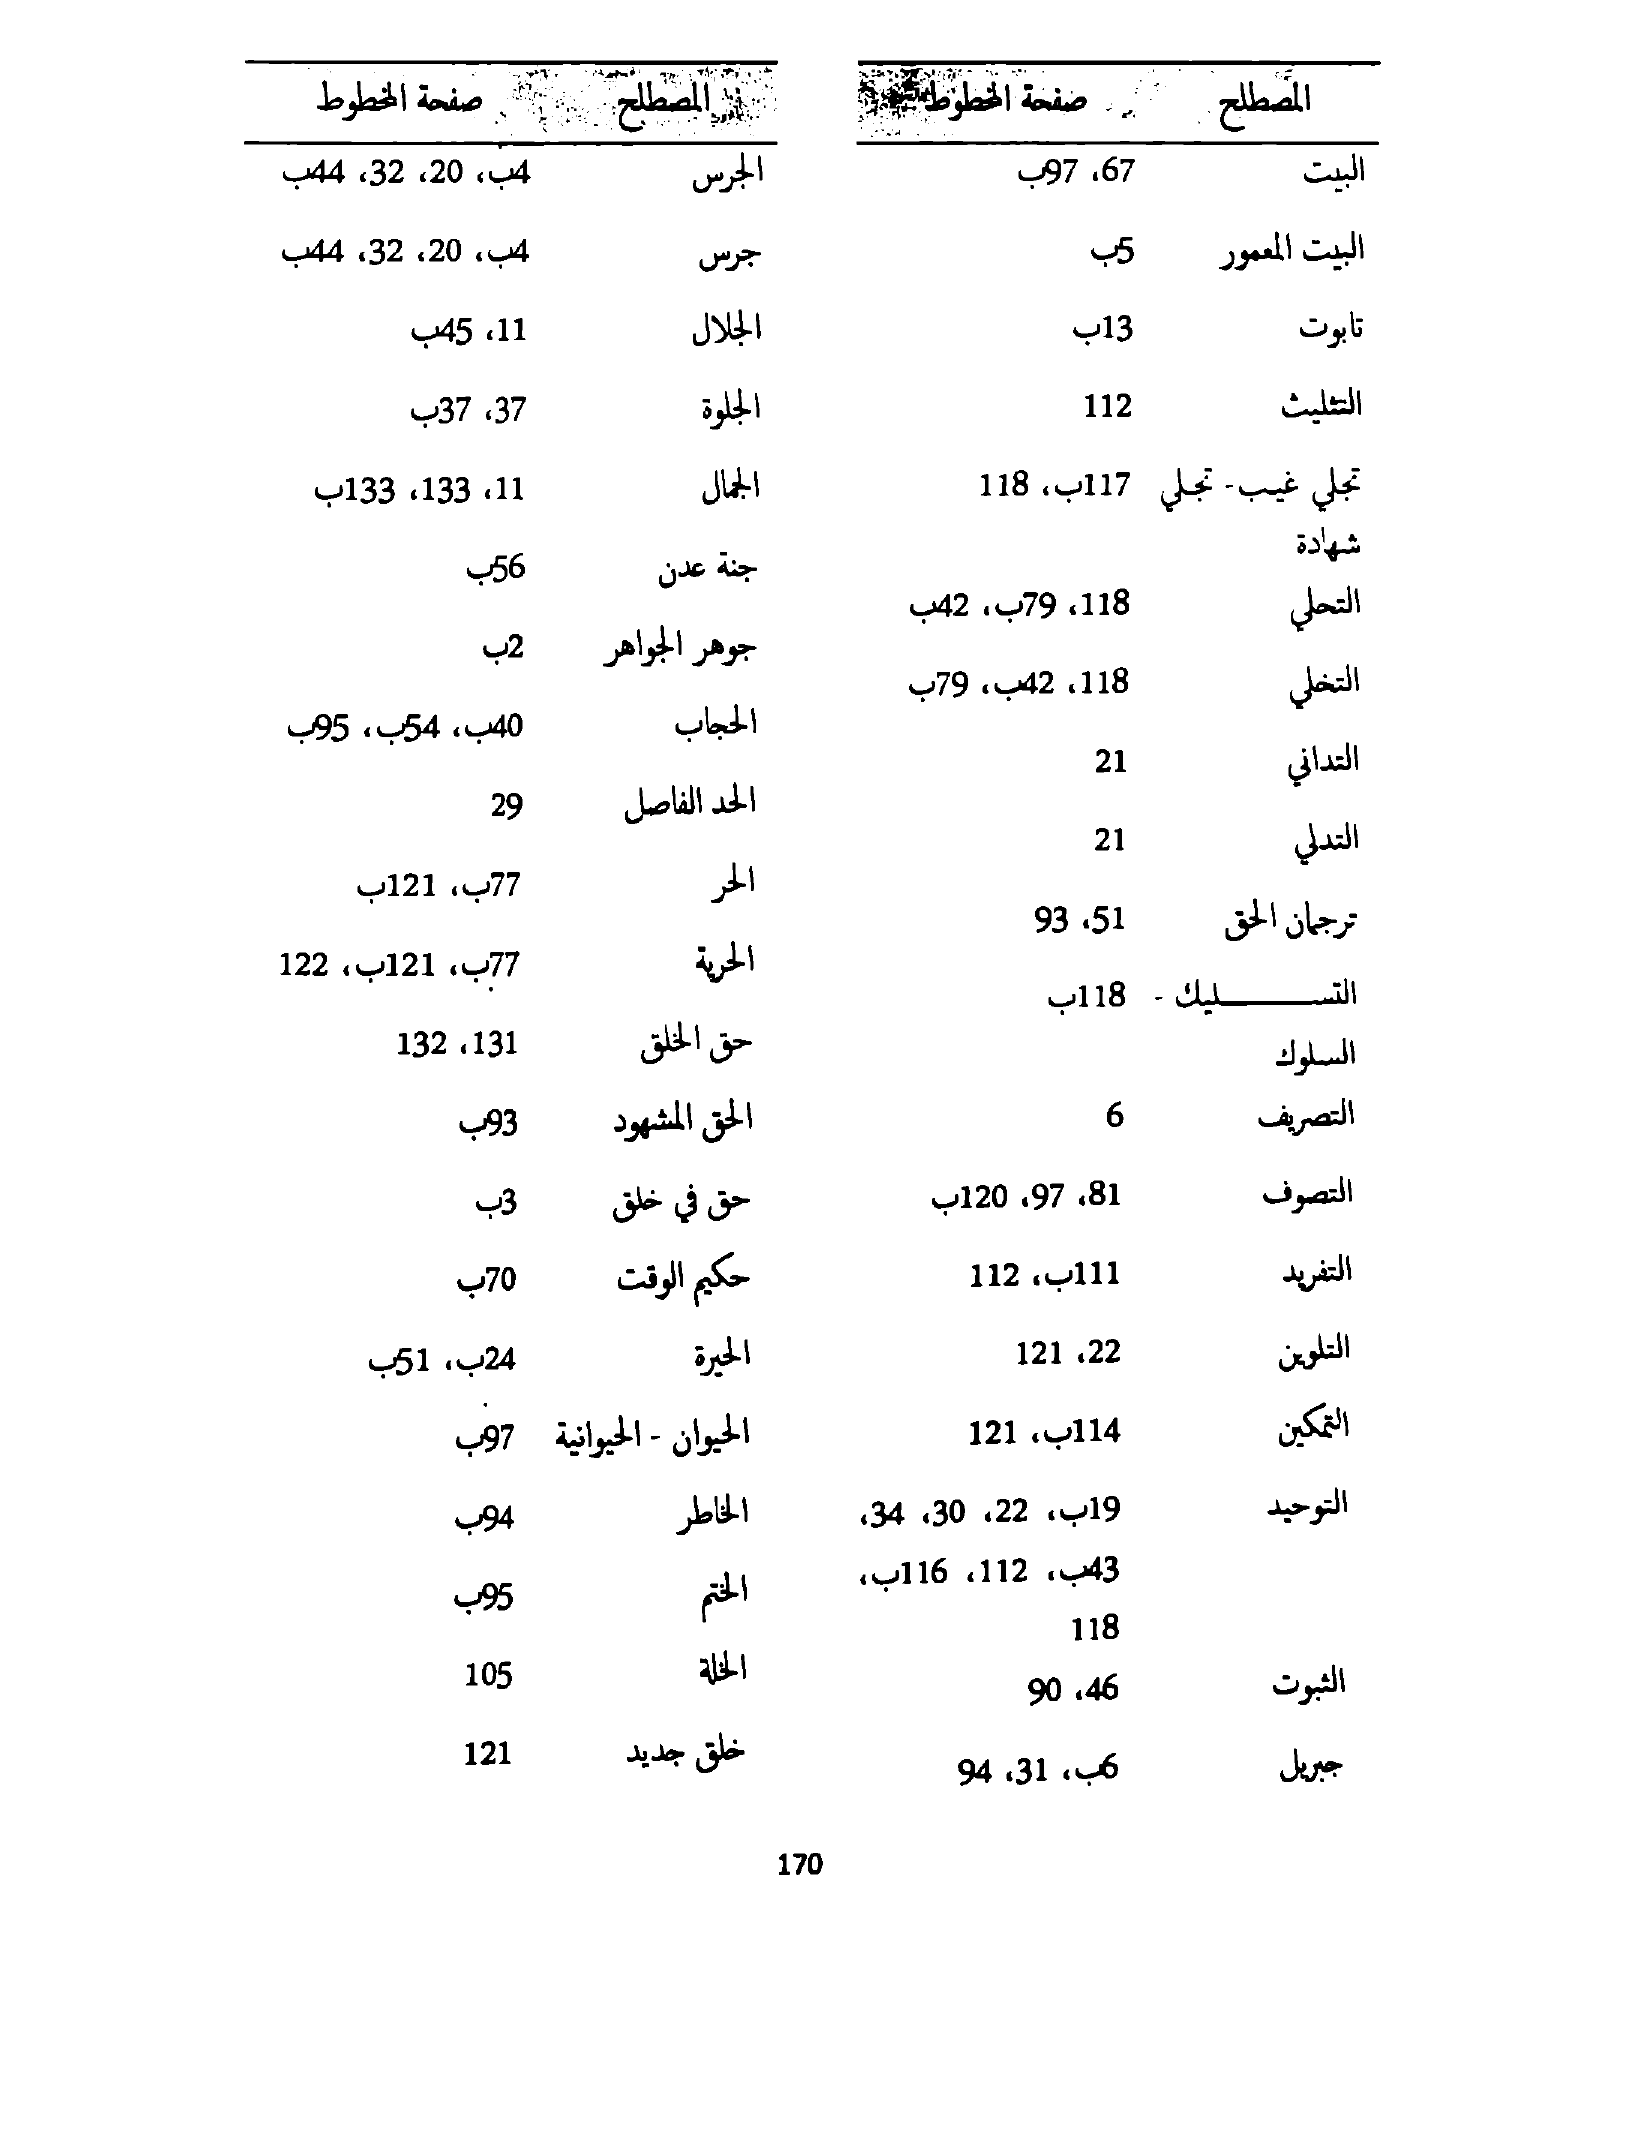 المصطلح صفحة المخطوط
البيت 67، 97ب
البيت المعمور 5ب
تابوت 13ب
التثليث 112
تجلي غيب- تجلي 117ب، 118
شهادة
التحلي 118، 79ب، 42ب
التخلي 118، 42ب، 79ب
التداني 21
التدلي 21
ترجمان الحق 51، 93
التســـــليك - 118ب
السلوك
التصريف 6
التصوف 81، 97، 120ب
التفريد 111ب، 112
التلوين 22، 121
التمكين 114ب، 121
التوحيد 19ب، 22، 30، 34،
43ب، 112، 116ب،
118
الثبوت 46، 90
جبريل 6ب، 31، 94
المصطلح صفحة المخطوط
الجرس 4ب، 20، 32، 44ب
جرس 4ب، 20، 32، 44ب
الجلال 11، 45ب
الجلوة 37، 37ب
الجمال 11، 133، 133ب
جنة عدن 56ب
جوهر الجواهر 2ب
الحجاب 40ب، 54ب، 95ب
الحد الفاصل 29
الحر 77ب، 121ب
الحرية 77ب، 121ب، 122
حق الخلق 131، 132
الحق المشهود 93ب
حق في خلق 3ب
حكيم الوقت 70ب
الحيرة 24ب، 51ب
الحيوان - الحيوانية 97ب
الخاطر 94ب
الختم 95ب
الخلة 105
خلق جديد 121
170